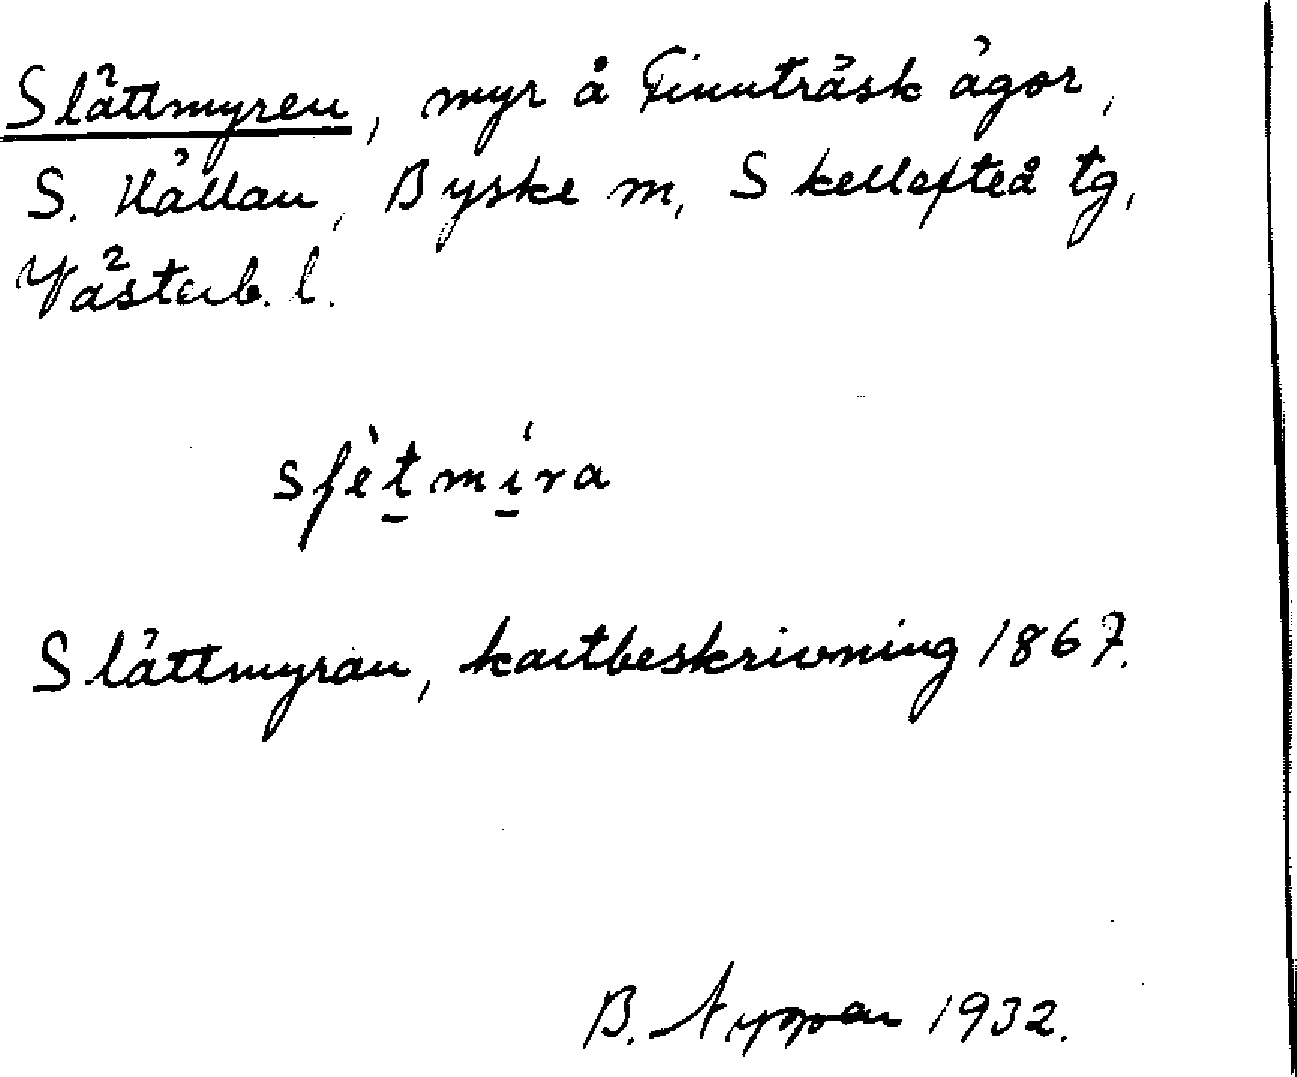 Slåttmyren, myr å Finnträsk ägor,
S. Hällan, Byske m, Skellefteå tg,
Västerb. l.
Slåttmyran, kartbeskrivning 1867.
B. 1932.